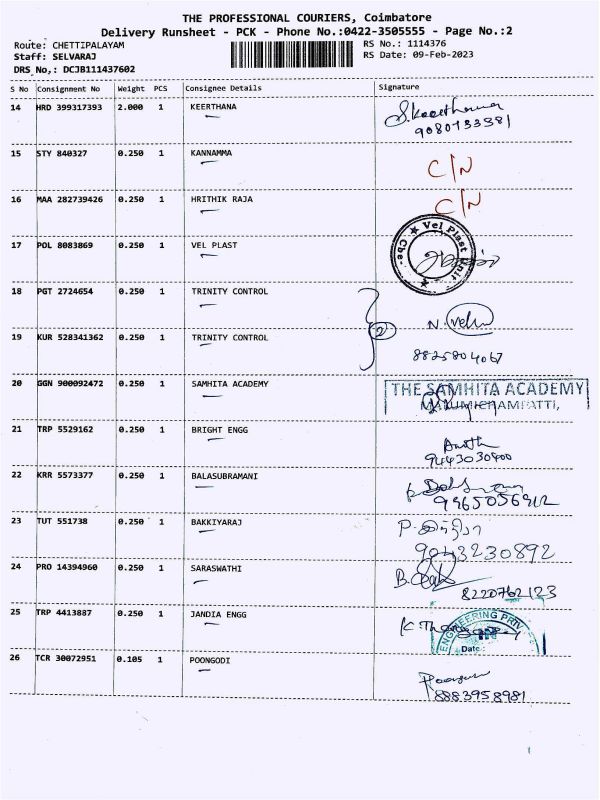 THE PROFESSIONAL COURIERS, Coimbatore
Delivery Runsheet - PCK - Phone No.:0422-3505555 - Page No.:2
Route: CHETTIPALAYAM RS No.: 1114376
Staff: SELVARAJ RS Date: 09-Feb-2023
DRS No,: DCJB111437602
S No Consignment No Weight PCS Consignee Details Signature
14 HRD 399317393 2.000 1 KEERTHANA
9080133381
15 STY 840327 0.250 1 KANNAMMA C/N
16 MAA 282739426 0.250 1 HRITHIK RAJA C/N
17 POL 8083869 0.250 1 VEL PLAST Vel Plast Unit
18 PGT 2724654 0.250 1 TRINITY CONTROL N. Velu
2
19 KUR 528341362 0.250 1 TRINITY CONTROL 8825804067
20 GGN 900092472 0.250 1 SAMHITA ACADEMY THE SAMHITA ACADEMY
21 TRP 5529162 0.250 1 BRIGHT ENGG
9443030400
22 KRR 5573377 0.250 1 BALASUBRAMANI
9965056912
23 TUT 551738 0.250 1 BAKKIYARAJ
9043230892
24 PRO 14394960 0.250 1 SARASWATHI
8220762123
25 TRP 4413887 0.250 1 JANDIA ENGG ENGINEERING PRIV
Date:
26 TCR 30072951 0.105 1 POONGODI
8883958981